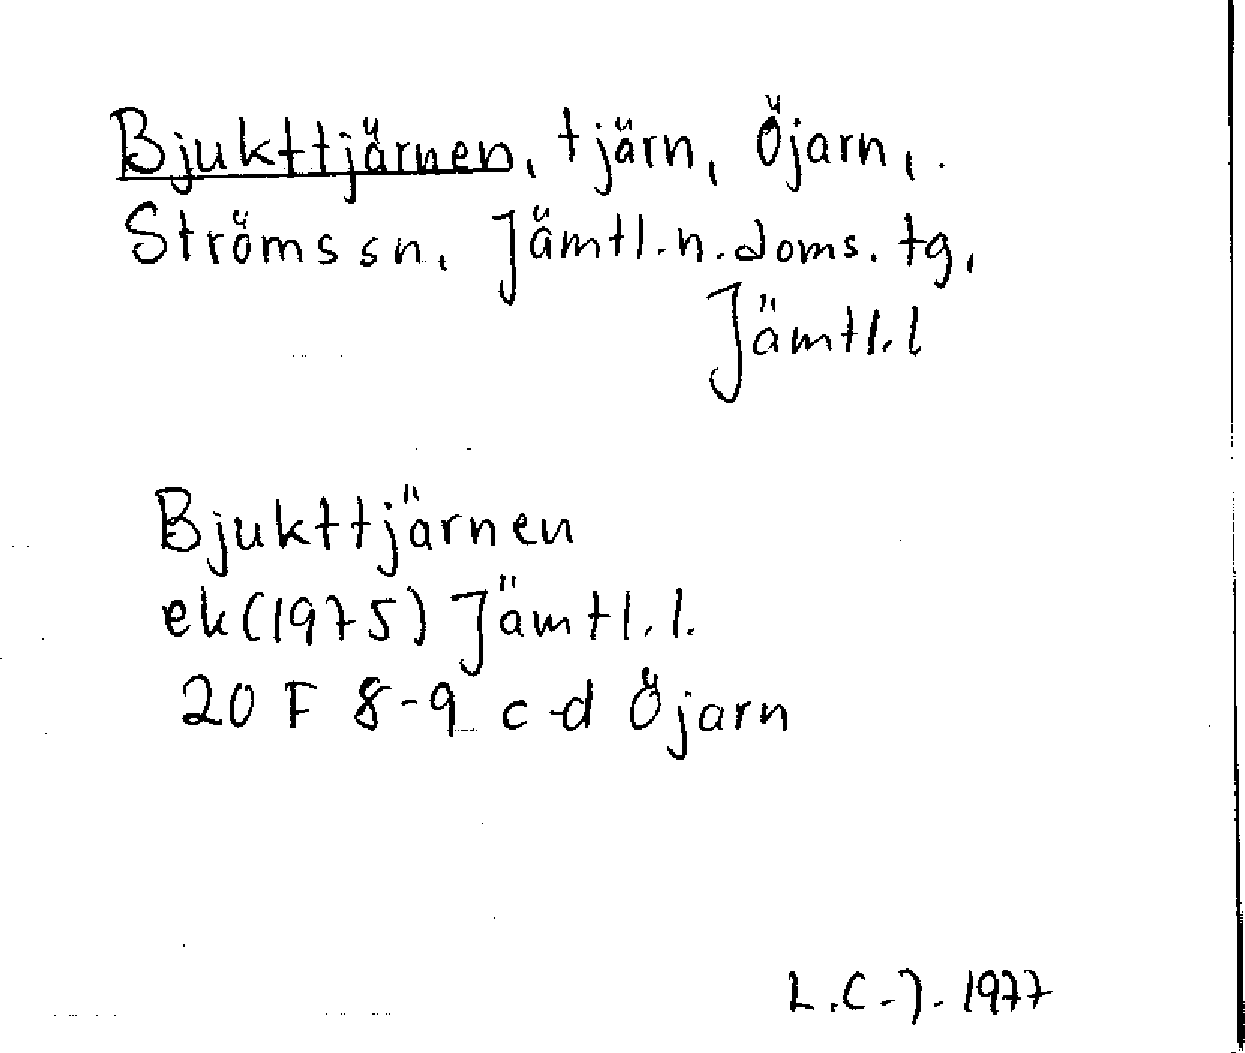 Bjukttjärnen, tjärn, Öjarn,
Ströms sn, Jämtl.n.doms.tg,
Jämtl.l
Bjukttjärnen
ek(1975) Jämtl.l.
20 F 8-9 c-d Öjarn
L.C-J. 1977